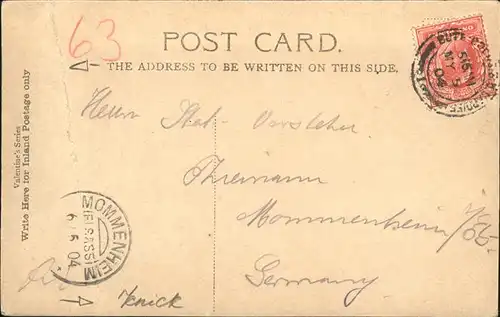 63
POST CARD.
THE ADDRESS TO BE WRITTEN ON THIS SIDE.
Valentine's Series
Write Here for Inland Postage only
Herrn Stat. Vorsteher
Thiemann
Mommenheim
Germany
MOMMENHEIM
(ELSASS)
6/5 04
Knick